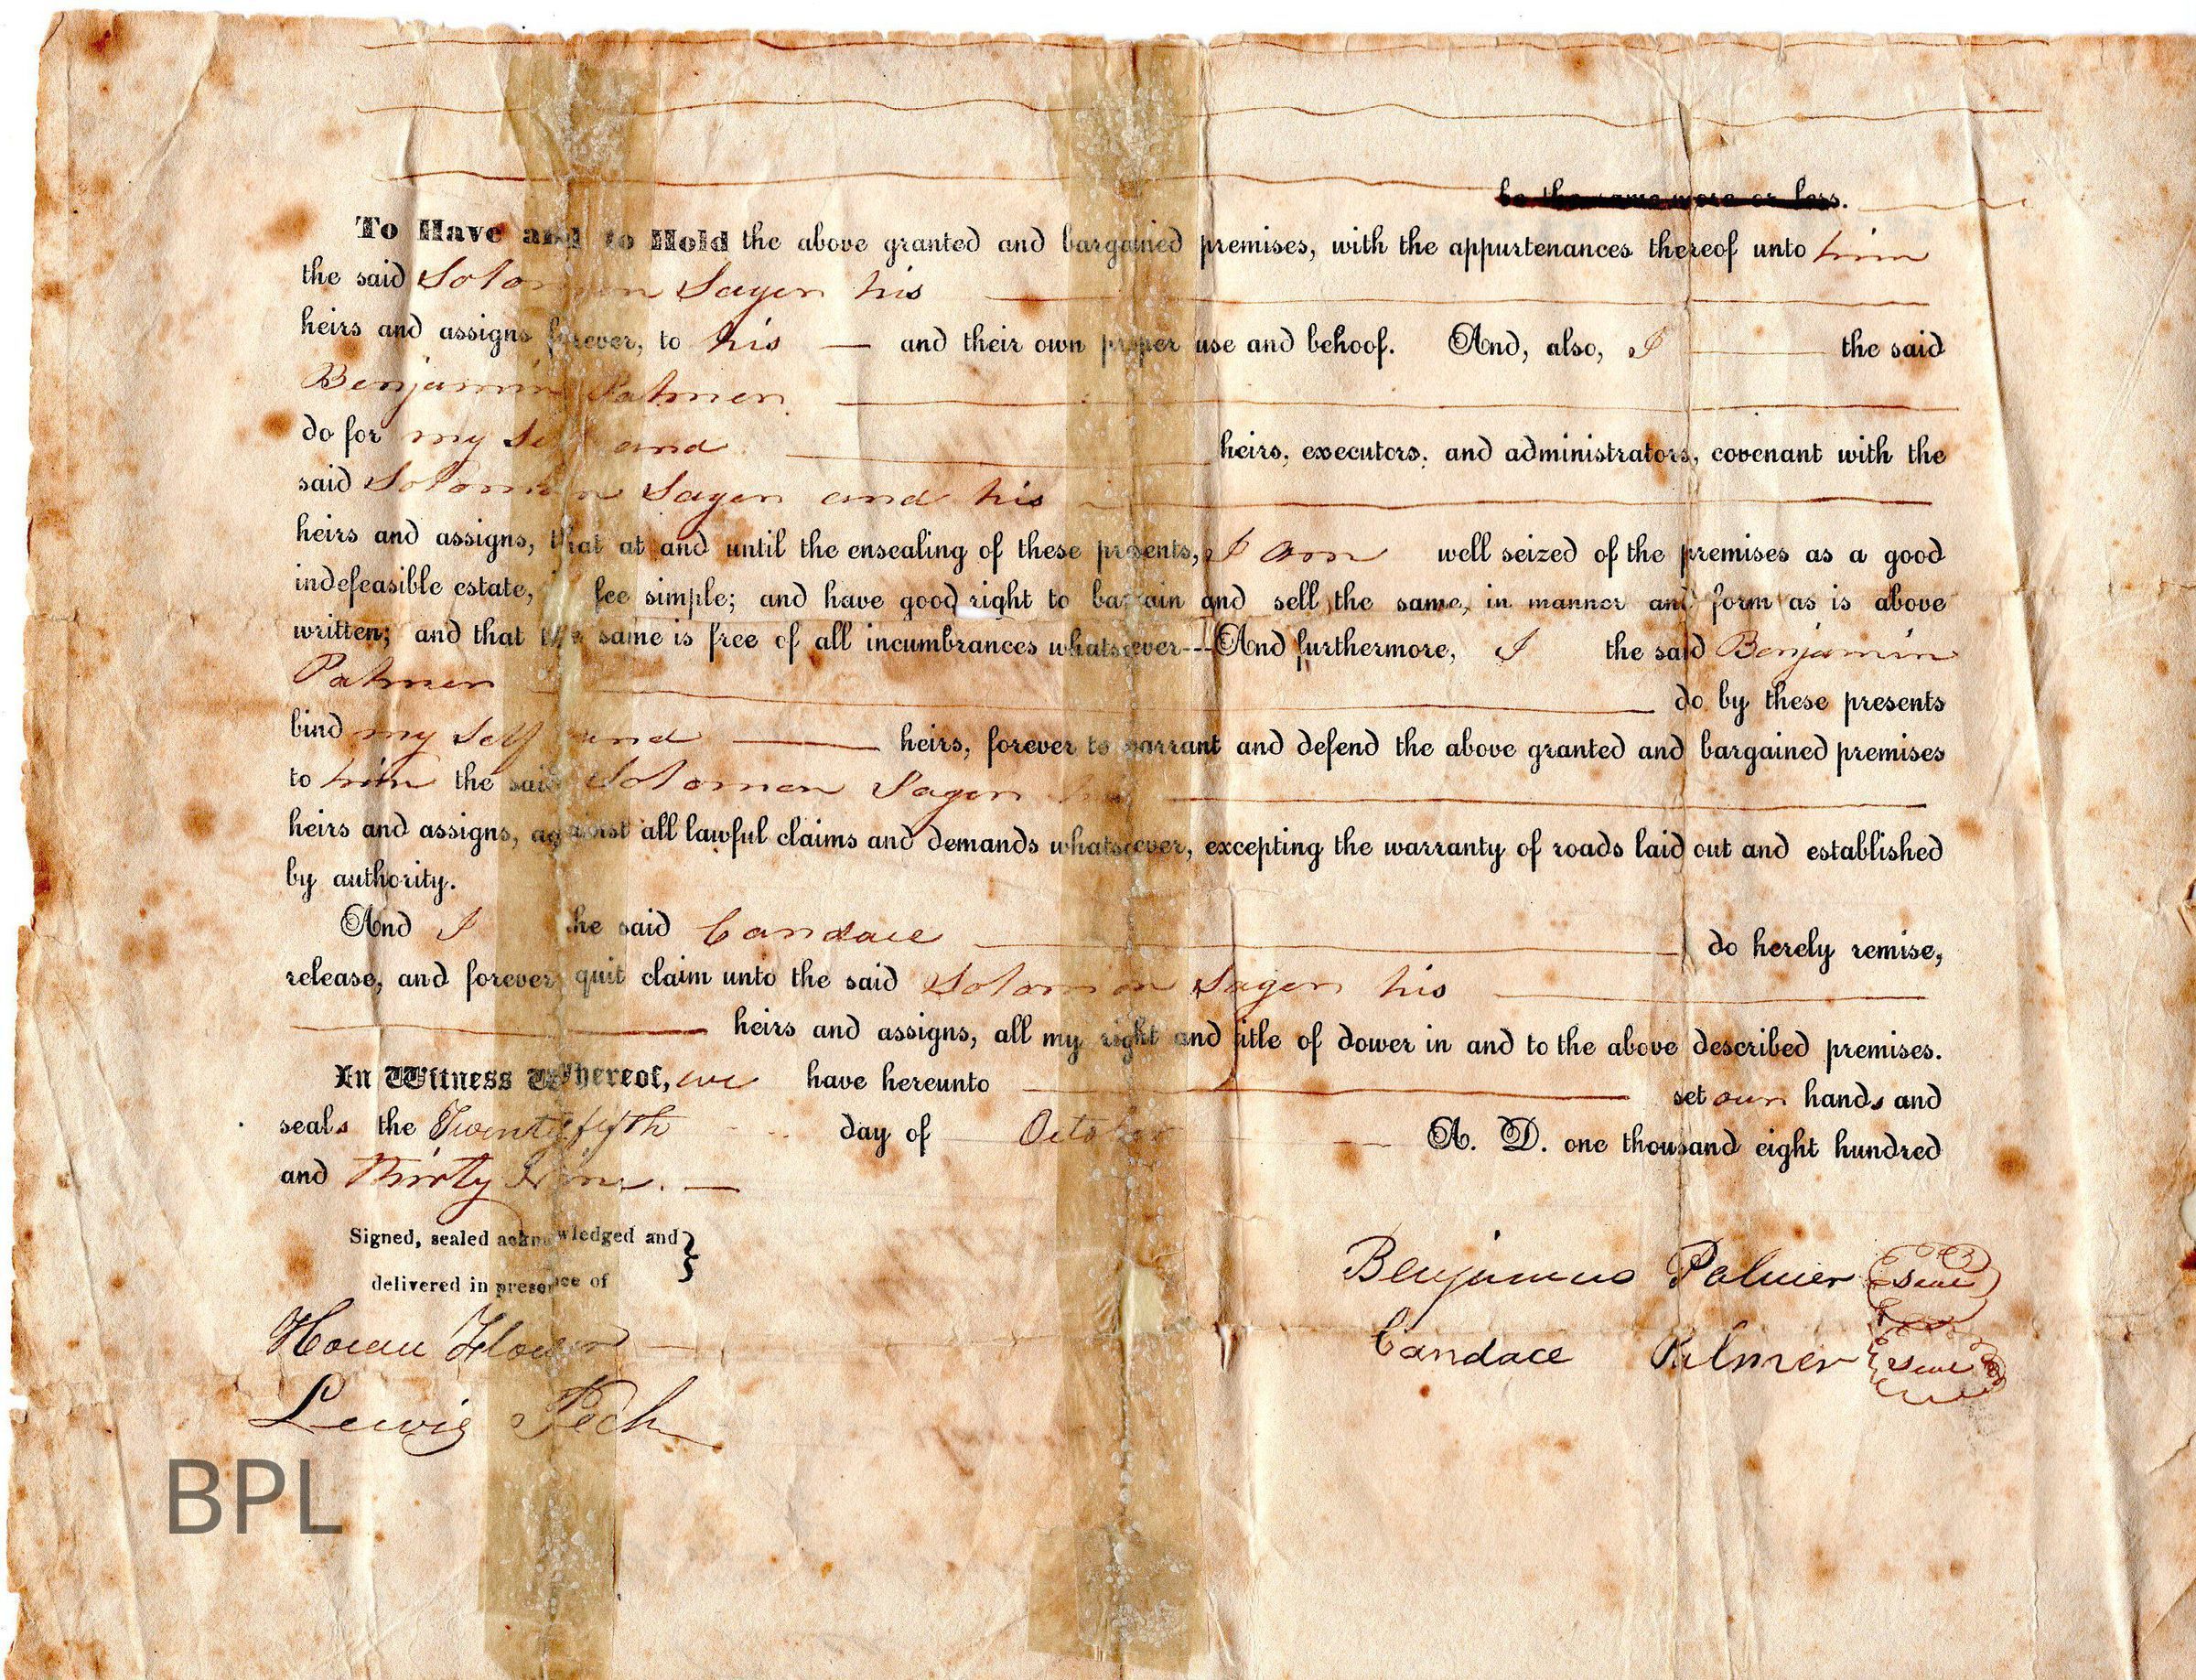 be the same more or less.
To Have and to Hold the above granted and bargained premises, with the appurtenances thereof unto him
the said Solomon Sayer his
heirs and assigns forever, to his and their own proper use and behoof. And, also, I the said
Benjamin Palmer
do for my self and heirs, executors, and administrators, covenant with the
said Solomon Sayer and his
heirs and assigns, that at and until the ensealing of these presents, I am well seized of the premises as a good
indefeasible estate, fee simple; and have good right to bargain and sell the same, in manner and form as is above
written; and that the same is free of all incumbrances whatsoever---And furthermore, I the said Benjamin
Palmer do by these presents
bind my Self and heirs, forever to warrant and defend the above granted and bargained premises
to him the said Solomon Sayer his
heirs and assigns, against all lawful claims and demands whatsoever, excepting the warranty of roads laid out and established
by authority.
And I the said Candace do herely remise,
release, and forever quit claim unto the said Solomon Sayer his
heirs and assigns, all my right and title of dower in and to the above described premises.
In Witness Whereof, we have hereunto set our hands and
seals the Twenty fifth day of October A. D. one thousand eight hundred
and Thirty
Signed, sealed acknowledged and
delivered in presence of
Benjamin Palmer Seal
Candace Palmer Seal
Lewis
BPL